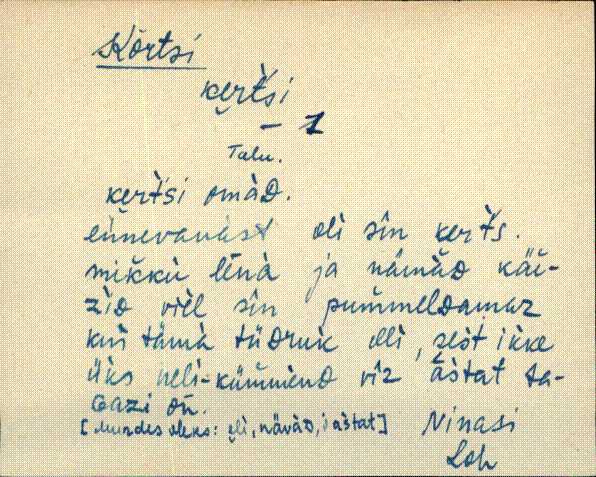 Kõrtsi
kert̀si
– 1
Talu.
kert̀si omàD.
ennevanàst oli sīn kert̀s.
mikkù lēnà ja nämàD käi-
ziD viel sīn pummelDamaz
kui tämà tüDruk oli, sest ikke
üks neli-kümmenD vīz āstat ta-
Gazi on.
[Murdes oleks: oli, nävàD, āstat]
Ninasi
Loh